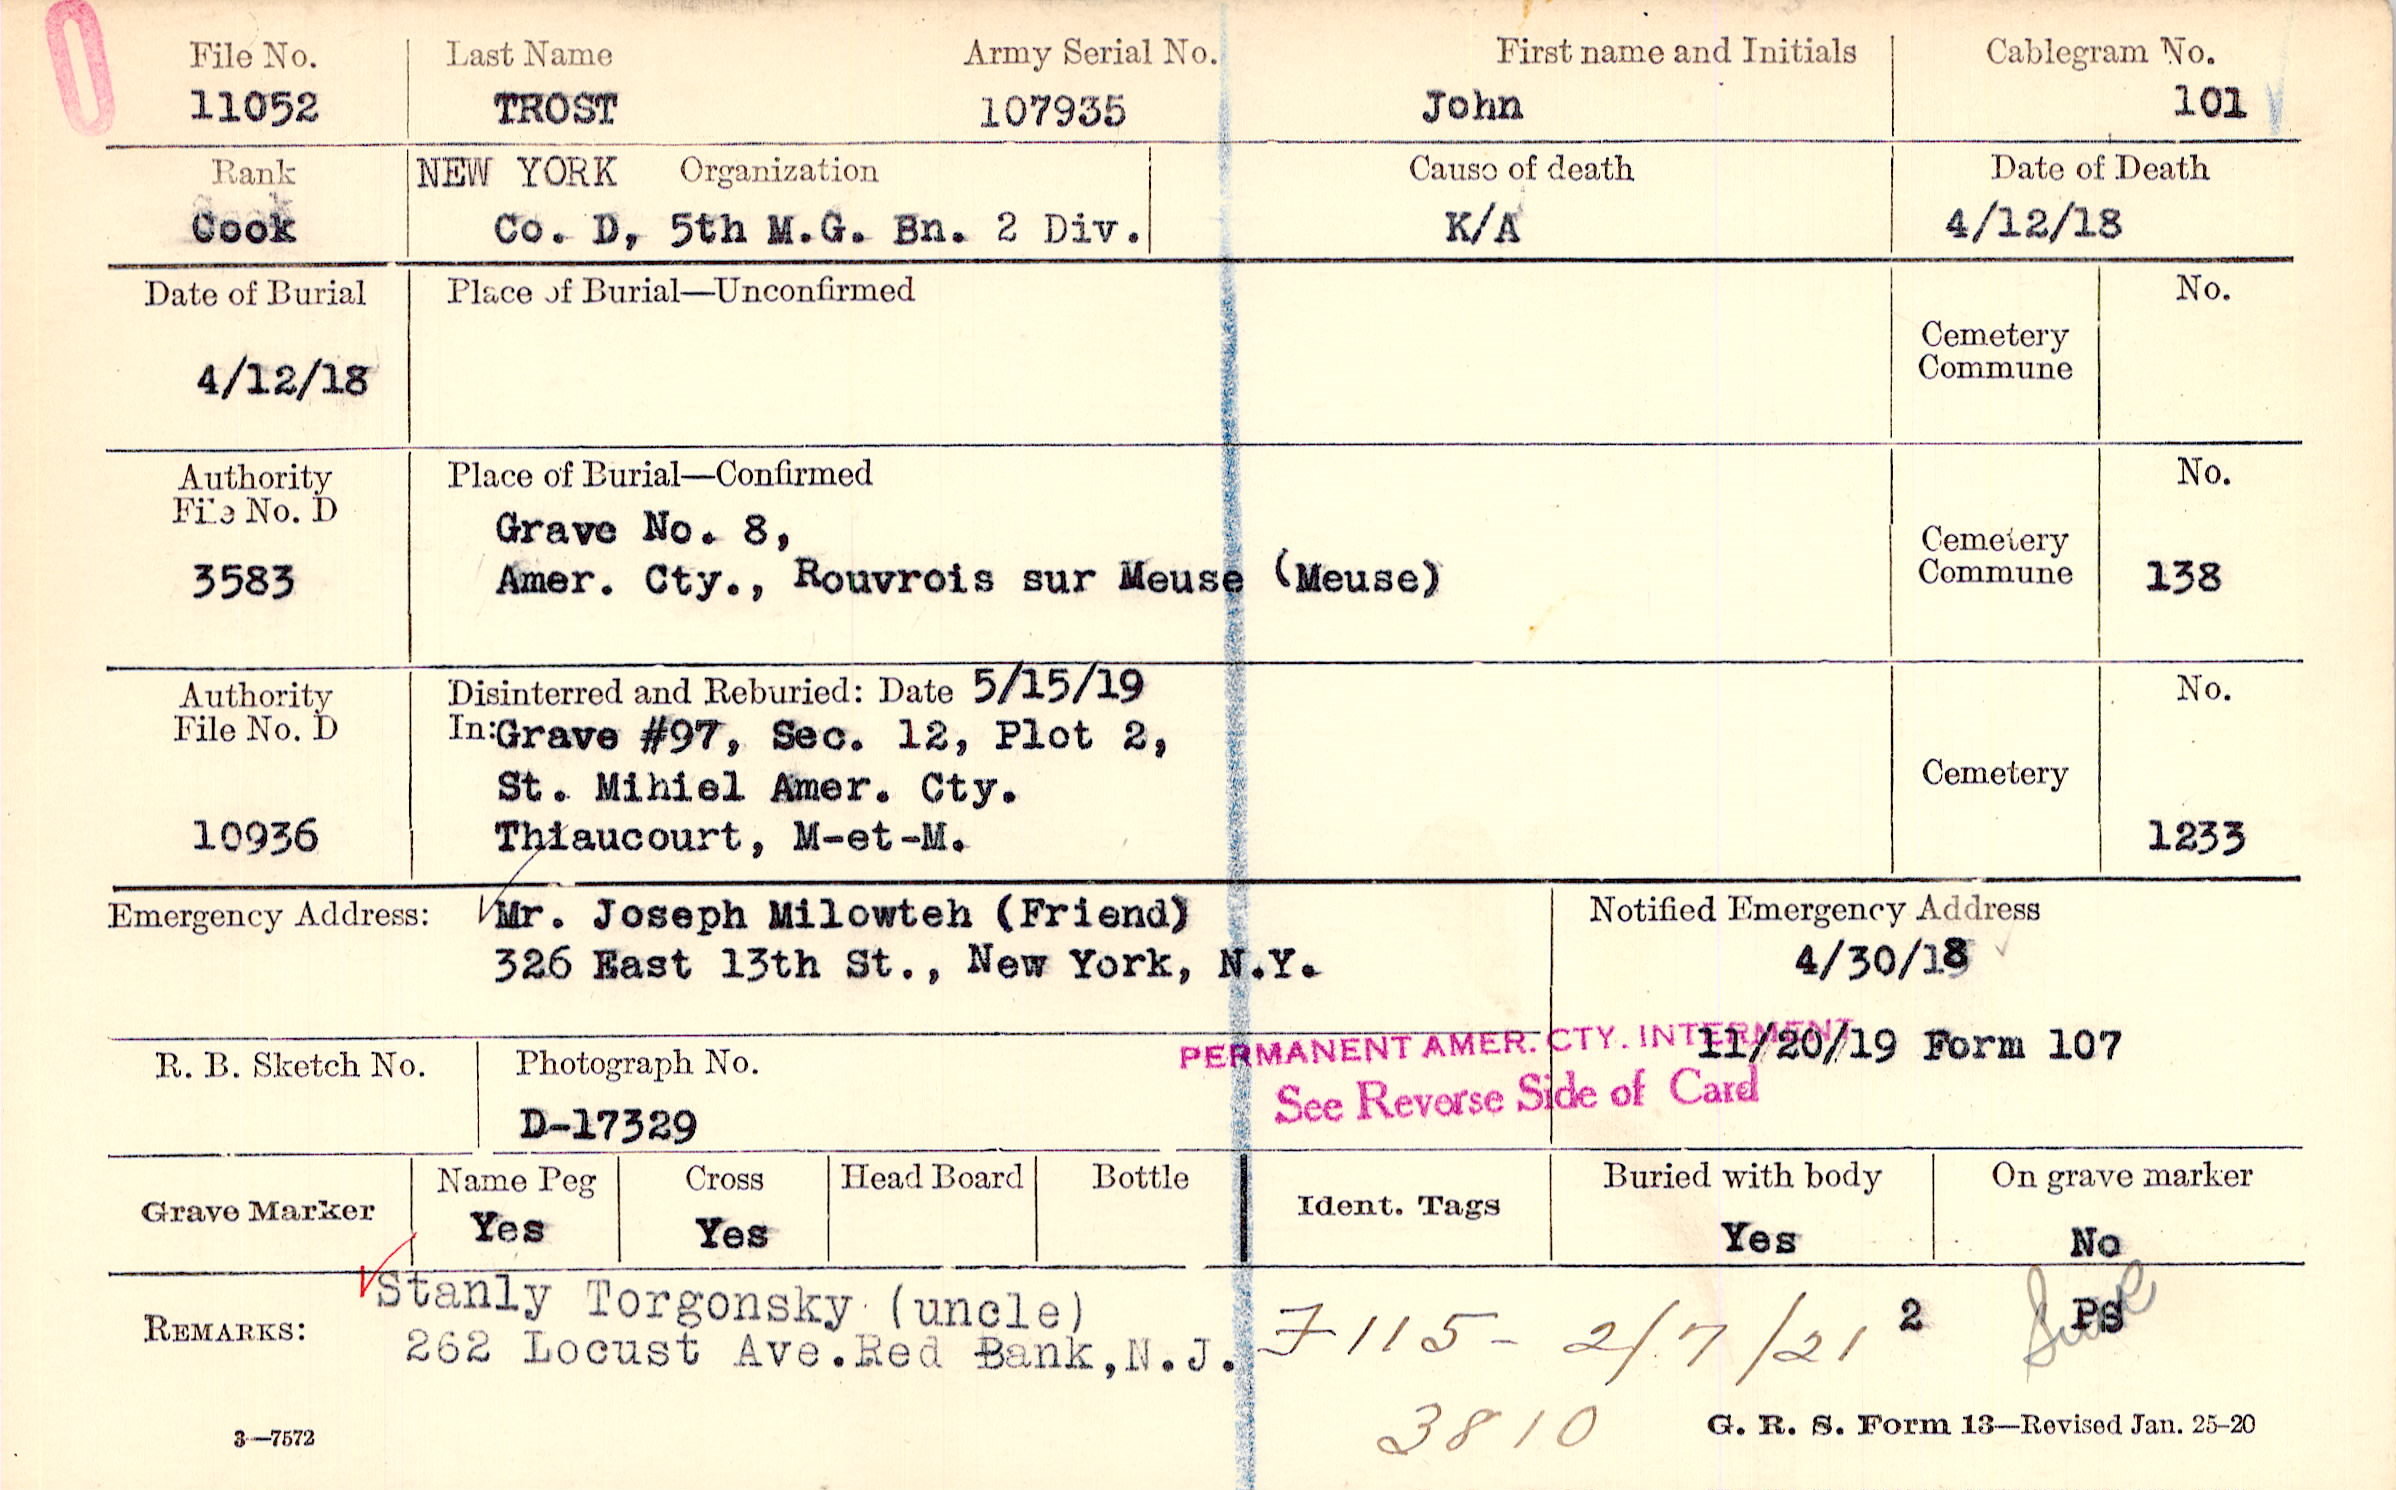 File No. Last Name Army Serial No. First name and Initials Cablegram No.
11052 TROST 107935 John 101
Rank NEW YORK Organization Cause of death Date of Death
Cook Co. D, 5th M.G. Bn. 2 Div. K/A 4/12/18
Date of Burial Place of Burial—Unconfirmed No.
Cemetery
Commune
4/12/18
Authority Place of Burial—Confirmed No.
File No. D
Grave No. 8,
Cemetery
Commune
3583 Amer. Cty., Rouvrois sur Meuse (Meuse) 138
Authority Disinterred and Reburied: Date 5/15/19 No.
File No. D In: Grave #97, Sec. 12, Plot 2,
St. Mihiel Amer. Cty. Cemetery
10936 Thiaucourt, M-et-M. 1233
Emergency Address: Mr. Joseph Milowteh (Friend) Notified Emergency Address
326 East 13th St., New York, N.Y. 4/30/18
PERMANENT AMER. CTY. INTERMENT 11/20/19 Form 107
See Reverse Side of Card
R. B. Sketch No. Photograph No.
D-17329
Grave Marker Name Peg Cross Head Board Bottle Ident. Tags Buried with body On grave marker
Yes Yes Yes No
Stanly Torgonsky (uncle)
REMARKS: 262 Locust Ave. Red Bank, N.J. F 115 - 2/7/21 2 PS
3810
3—7572 G. R. S. Form 13—Revised Jan. 25-20